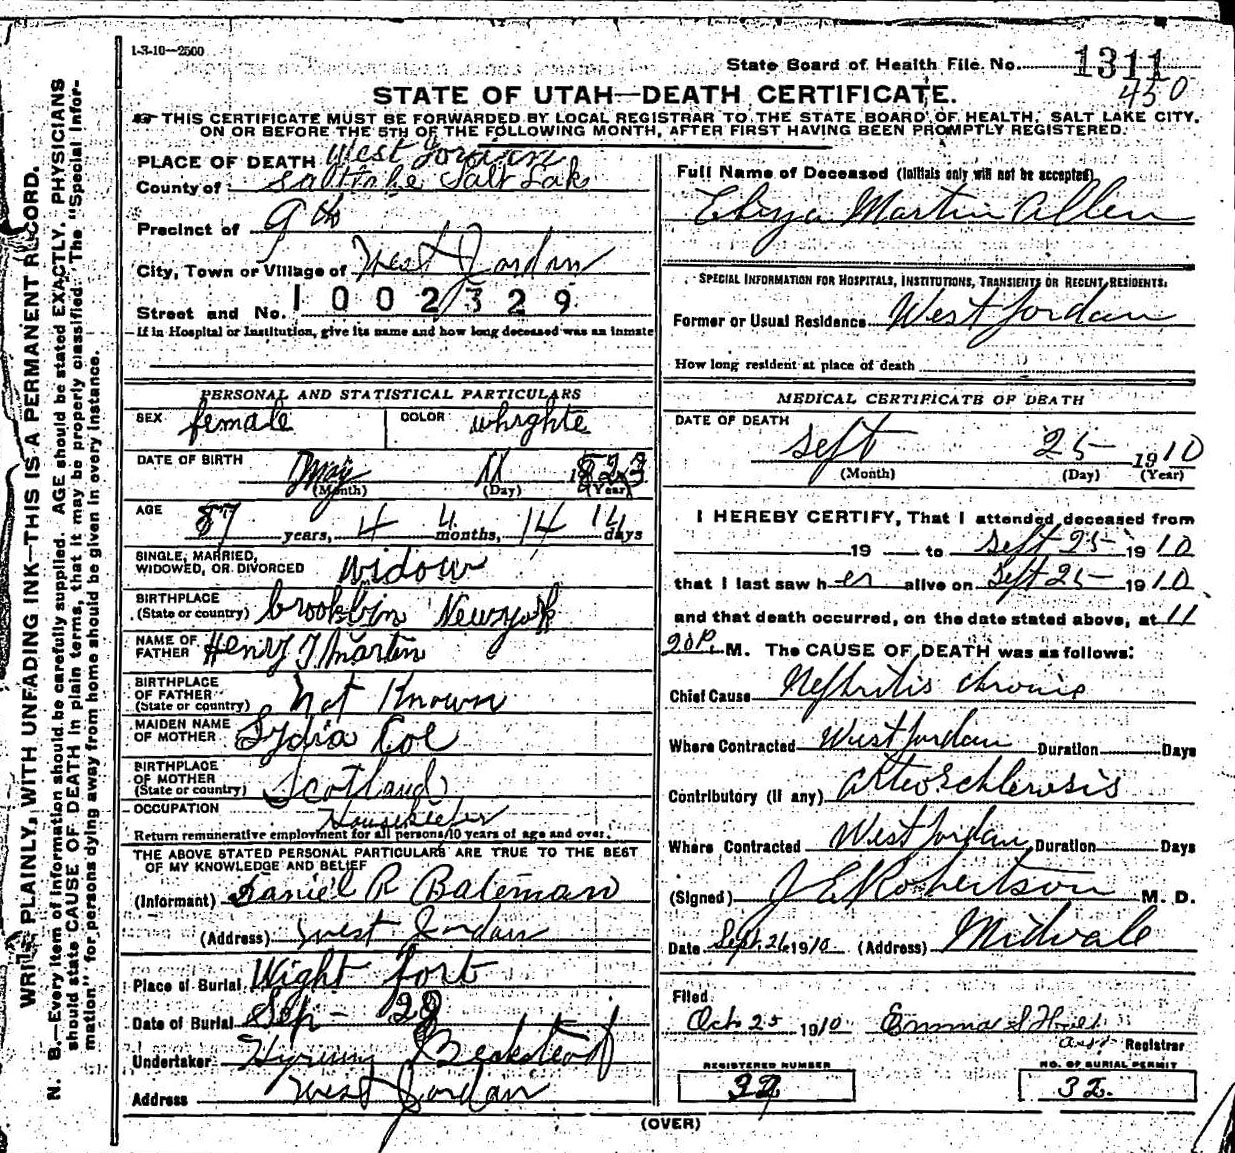 1-3-10—2500
State Board of Health File No. 1311
450
STATE OF UTAH—DEATH CERTIFICATE.
THIS CERTIFICATE MUST BE FORWARDED BY LOCAL REGISTRAR TO THE STATE BOARD OF HEALTH, SALT LAKE CITY,
ON OR BEFORE THE 5TH OF THE FOLLOWING MONTH, AFTER FIRST HAVING BEEN PROMPTLY REGISTERED.
PLACE OF DEATH West Jordan
County of Salt Lake Salt Lak
Precinct of 9th
City, Town or Village of West Jordan
Street and No. 1002329
If in Hospital or Institution, give its name and how long deceased was an inmate
PERSONAL AND STATISTICAL PARTICULARS
SEX female COLOR whighte
DATE OF BIRTH May 11 1823
(Month) (Day) (Year)
AGE 87 years, 4 4 months, 14 14 days
SINGLE, MARRIED,
WIDOWED, OR DIVORCED widow
BIRTHPLACE
(State or country) brooklin Newyork
NAME OF
FATHER Henry T Martin
BIRTHPLACE
OF FATHER
(State or country) Not Known
MAIDEN NAME
OF MOTHER Lydia Coe
BIRTHPLACE
OF MOTHER
(State or country) Scotland
OCCUPATION Housekeeper
Return remunerative employment for all persons 10 years of age and over.
THE ABOVE STATED PERSONAL PARTICULARS ARE TRUE TO THE BEST
OF MY KNOWLEDGE AND BELIEF
(Informant) Daniel R Bateman
(Address) West Jordan
Place of Burial Wight fort
Date of Burial Sep - 28
Undertaker Hyrum Beckstead
Address West Jordan
Full Name of Deceased (Initials only will not be accepted)
Martin Allen
SPECIAL INFORMATION FOR HOSPITALS, INSTITUTIONS, TRANSIENTS OR RECENT RESIDENTS.
Former or Usual Residence West Jordan
How long resident at place of death
MEDICAL CERTIFICATE OF DEATH
DATE OF DEATH
Sept 25 1910
(Month) (Day) (Year)
I HEREBY CERTIFY, That I attended deceased from
19 to Sept 25 1910
that I last saw her alive on Sept 25 1910
and that death occurred, on the date stated above, at 11
20 P. M. The CAUSE OF DEATH was as follows:
Chief Cause Nephritis chronic
Where Contracted West Jordan Duration Days
Contributory (if any) Arteoschlerosis
Where Contracted West Jordan Duration Days
(Signed) J E Robertson M. D.
Date Sept. 26 1910 (Address) Midvale
Filed
Oct 25 1910 Emma S
Asst Registrar
REGISTERED NUMBER NO. OF BURIAL PERMIT
32 32.
(OVER)
WRITE PLAINLY, WITH UNFADING INK—THIS IS A PERMANENT RECORD.
N. B.—Every item of information should be carefully supplied. AGE should be stated EXACTLY. PHYSICIANS
should state CAUSE OF DEATH in plain terms, that it may be properly classified. The "Special Infor-
mation" for persons dying away from home should be given in every instance.